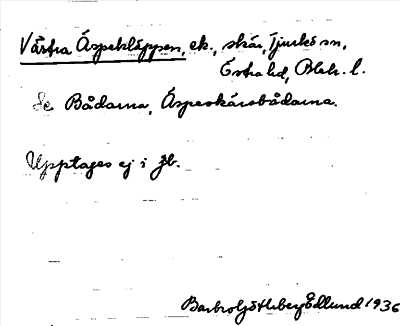 Västra Äspeklåppen, ek., skär, Tjurkö sn,
Östra hd, Blek. l.
Se Bådarna, Äspeskärsbådarna.
Upptages ej i jb.
Barbro Götlberg Edlund 1936